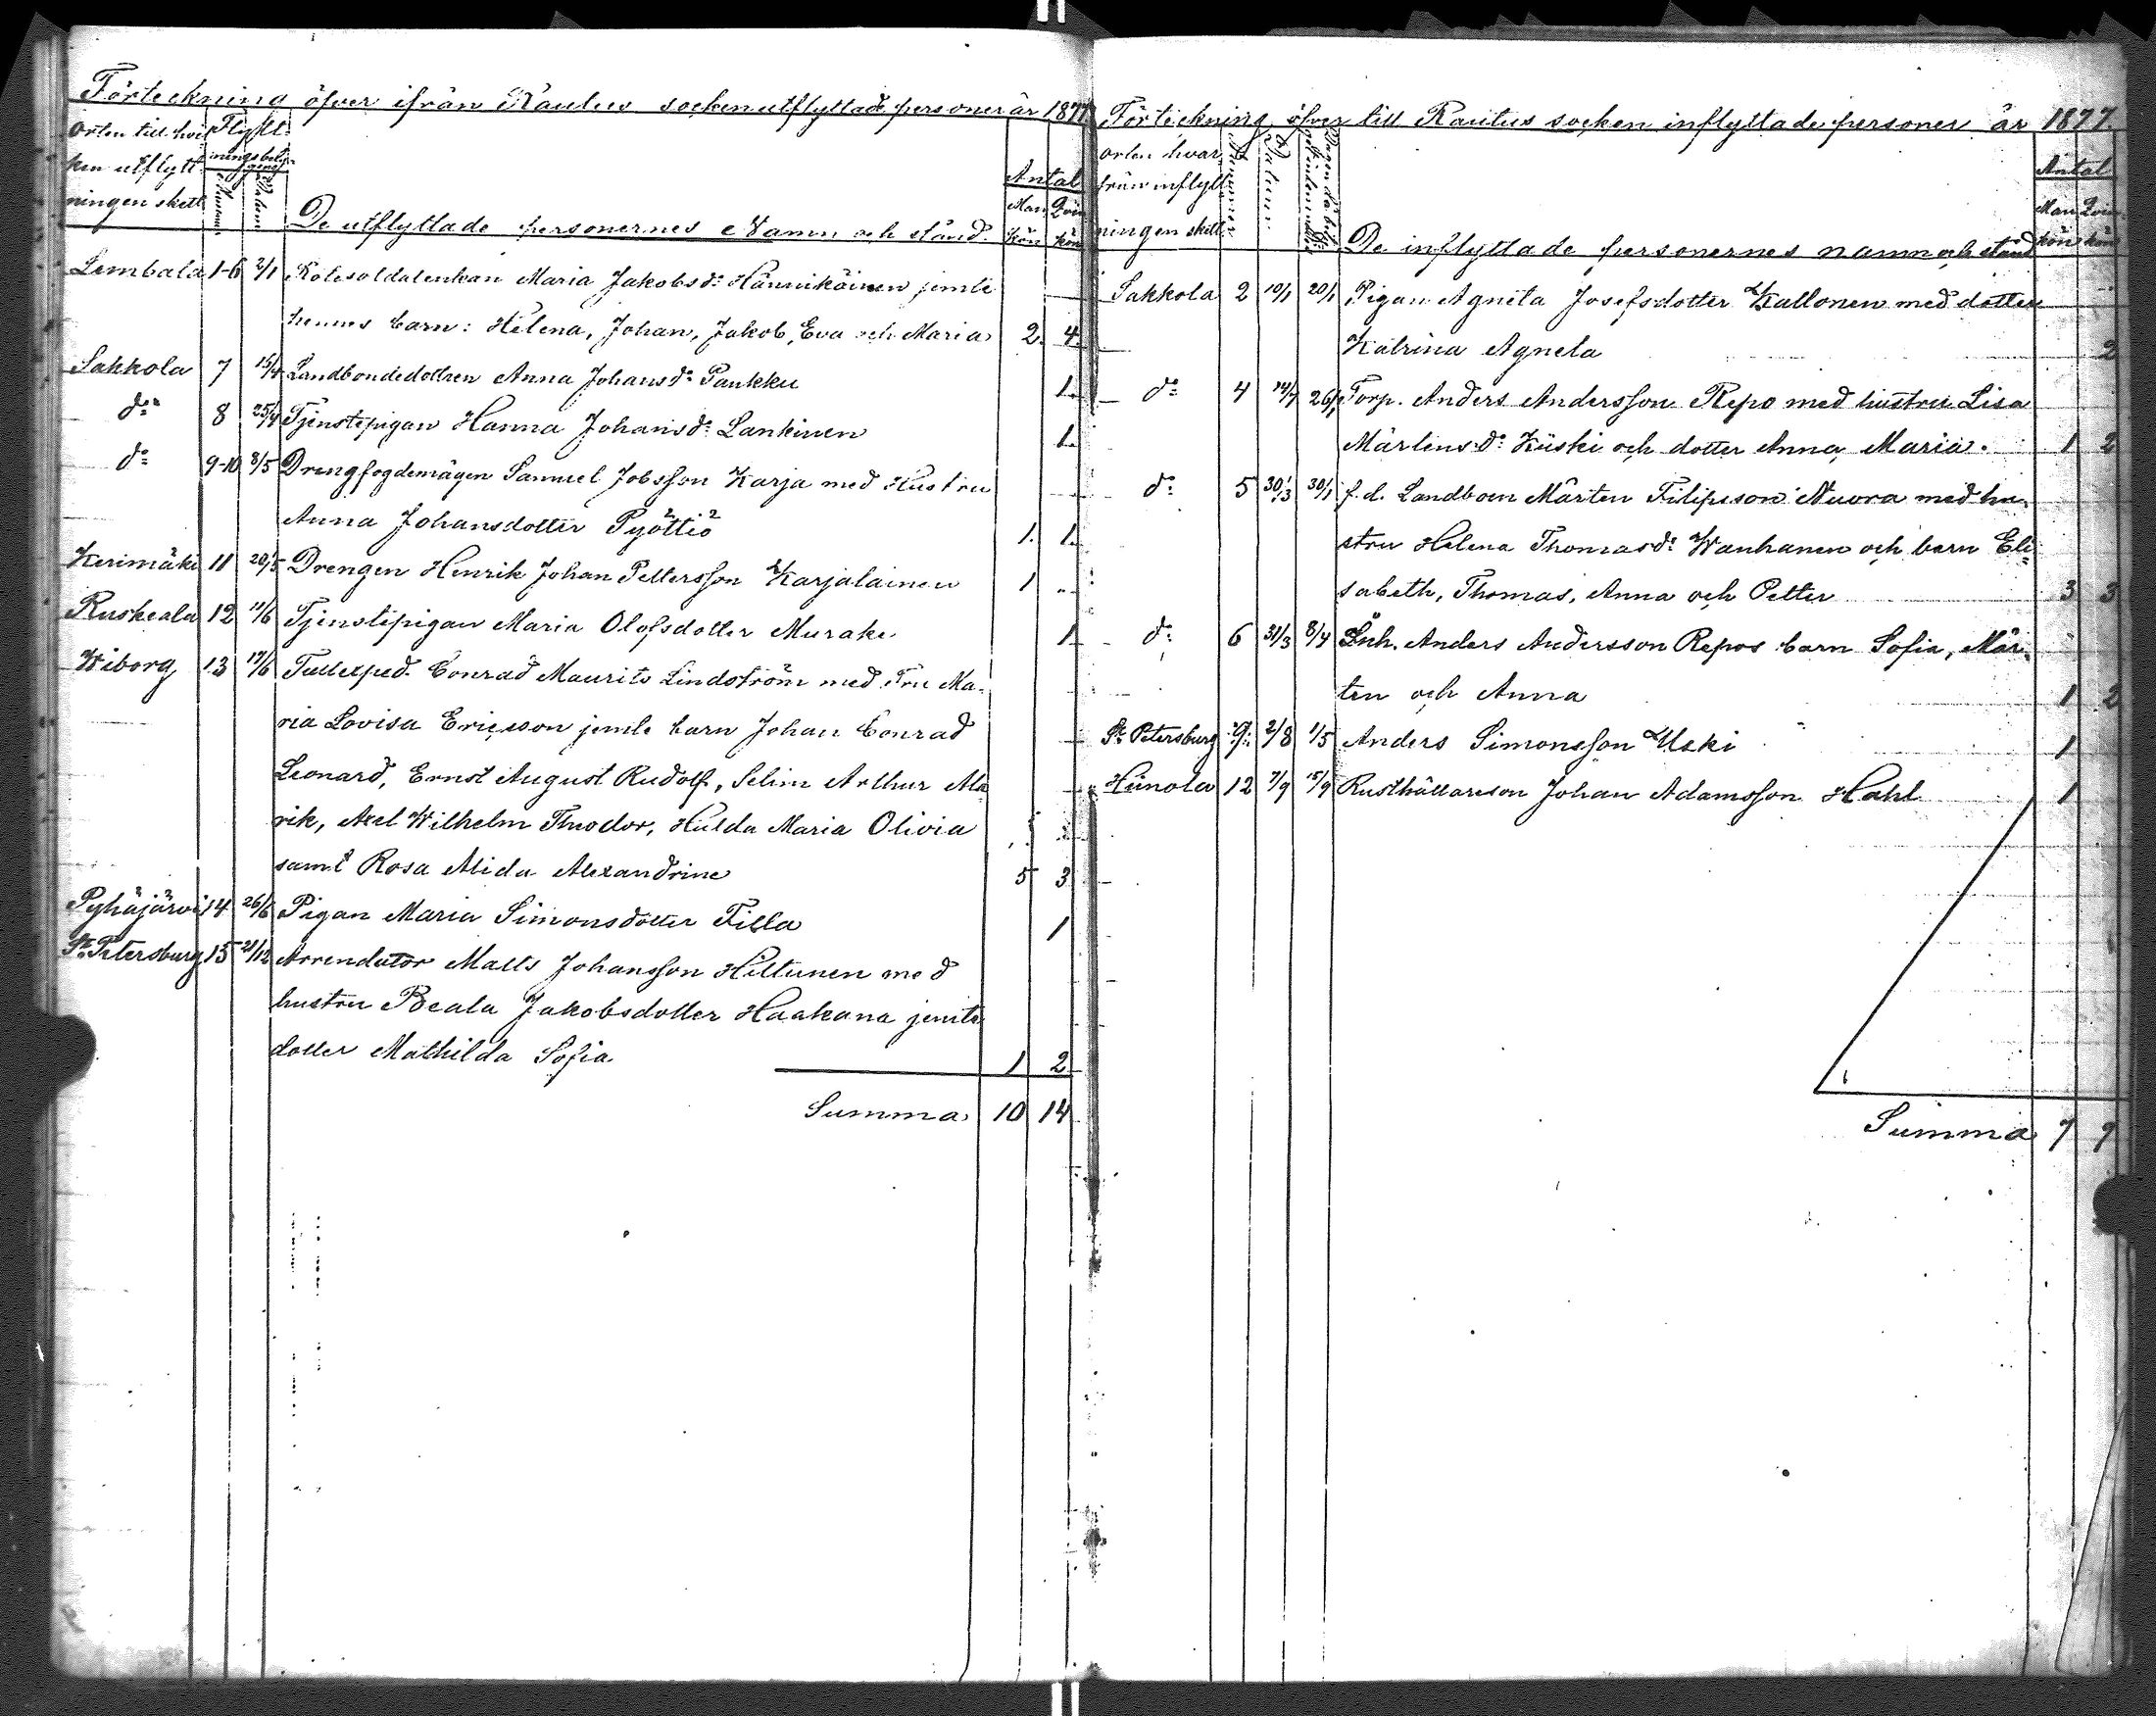 Förteckning öfver ifrån Rautus socken utflyttade personer år 1877
Orten till hvil
ken utflytt
ningen skett
Flytt
ningsbety
Antal
Man Qvin
kön kön
De utflyttade personernes Namn och stånd.
Lembala 1-6 2/1 Rotesoldatenkan Maria Jakobsd: Hännikäinen jemte
hennes barn: Helena, Johan, Jakob, Eva och Maria 2. 4.
Sakkola 7 15/4 Landbondedottren Anna Johansd: Paukku 1.
d:o 8 25/4 Tjenstepigan Hanna Johansd: Lankinen 1.
d:o 9-10 8/5 Drengfogdemågen Samuel Jobsson Karja med Hustru
Anna Johansdotter Pyöttiö 1. 1.
Kerimäki 11 20/5 Drengen Henrik Johan Pettersson Karjalainen 1 "
Ruskeala 12 11/6 Tjenstepigan Maria Olofsdotter Murake 1
Wiborg 13 17/6 Tullexped. Conrad Maurits Lindström med Fru Ma-
ria Lovisa Ericsson jemte barn Johan Conrad
Leonard, Ernst August Rudolf, Selim Arthur Ala
rik, Axel Wilhelm Theodor, Hulda Maria Olivia
samt Rosa Alida Alexandrine 5 3
Pyhäjärvi 14 26/6 Pigan Maria Simonsdotter Filla 1
S:t Petersburg 15 21/12 Arrendator Matts Johansson Hiltunen med
hustru Beata Jakobsdotter Haakana jemte
dotter Mathilda Sofia 1 2
Summa 10 14
Förteckning öfver till Rautus socken inflyttade personer år 1877.
Orten hvar
från inflytt
ningen skett
Datum
Antal
Man Qvin
kön kön
De inflyttade personernes namn och stånd
Sakkola 2 10/1 20/1 Pigan Agneta Josefsdotter Kallonen med dotter
Katrina Agneta 2
d:o 4 14/7 26/7 Torp. Anders Andersson Repo med hustru Lisa
Mårtensd: Kiiski och dotter Anna Maria. 1 2
d:o 5 30/3 30/1 f.d. Landboen Mårten Filipsson Nuora med hu-
stru Helena Thomasd: Wanhanen och barn Eli
sabeth, Thomas, Anna och Petter 3 3
d:o 6 31/3 8/4 Inh. Anders Andersson Repos barn Sofia, Mår-
ten och Anna 1 2
S:t Petersburg 9: 2/8 1/5 Anders Simonsson Uski 1
Heinola 12 7/9 15/9 Rusthållareson Johan Adamsson Hahl 1
Summa 7 9